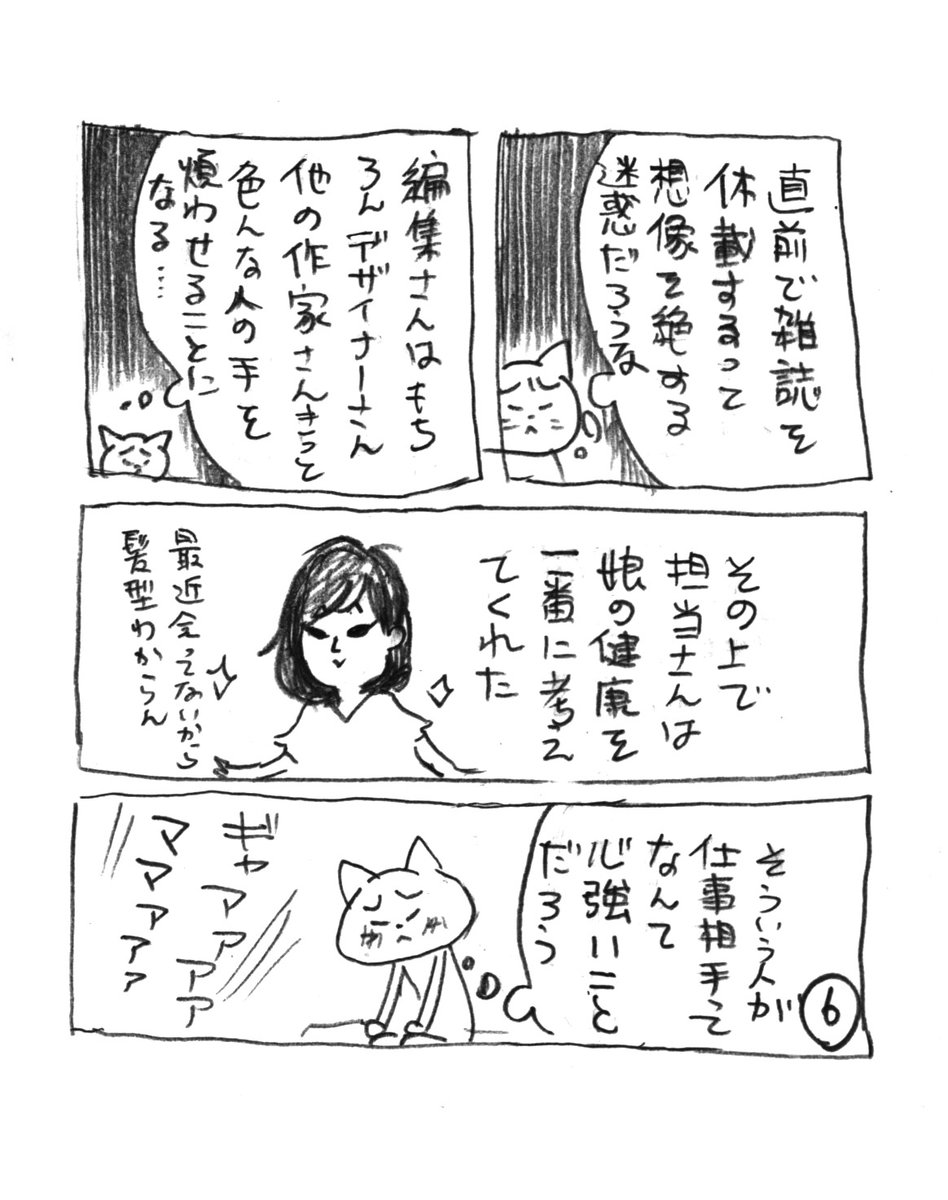 直前で雑誌を
休載するって
想像を絶する
迷惑だろうな
編集さんはもち
ろんデザイナーさん
他の作家さんきっと
色んな人の手を
煩わせることに
なる……
その上で
担当さんは
娘の健康を
一番に考え
てくれた
最近会ってないから
髪型わからん
そういう人が
仕事相手って
なんて
心強いこと
だろう
ギャ
アアアア
ママァァァ
6